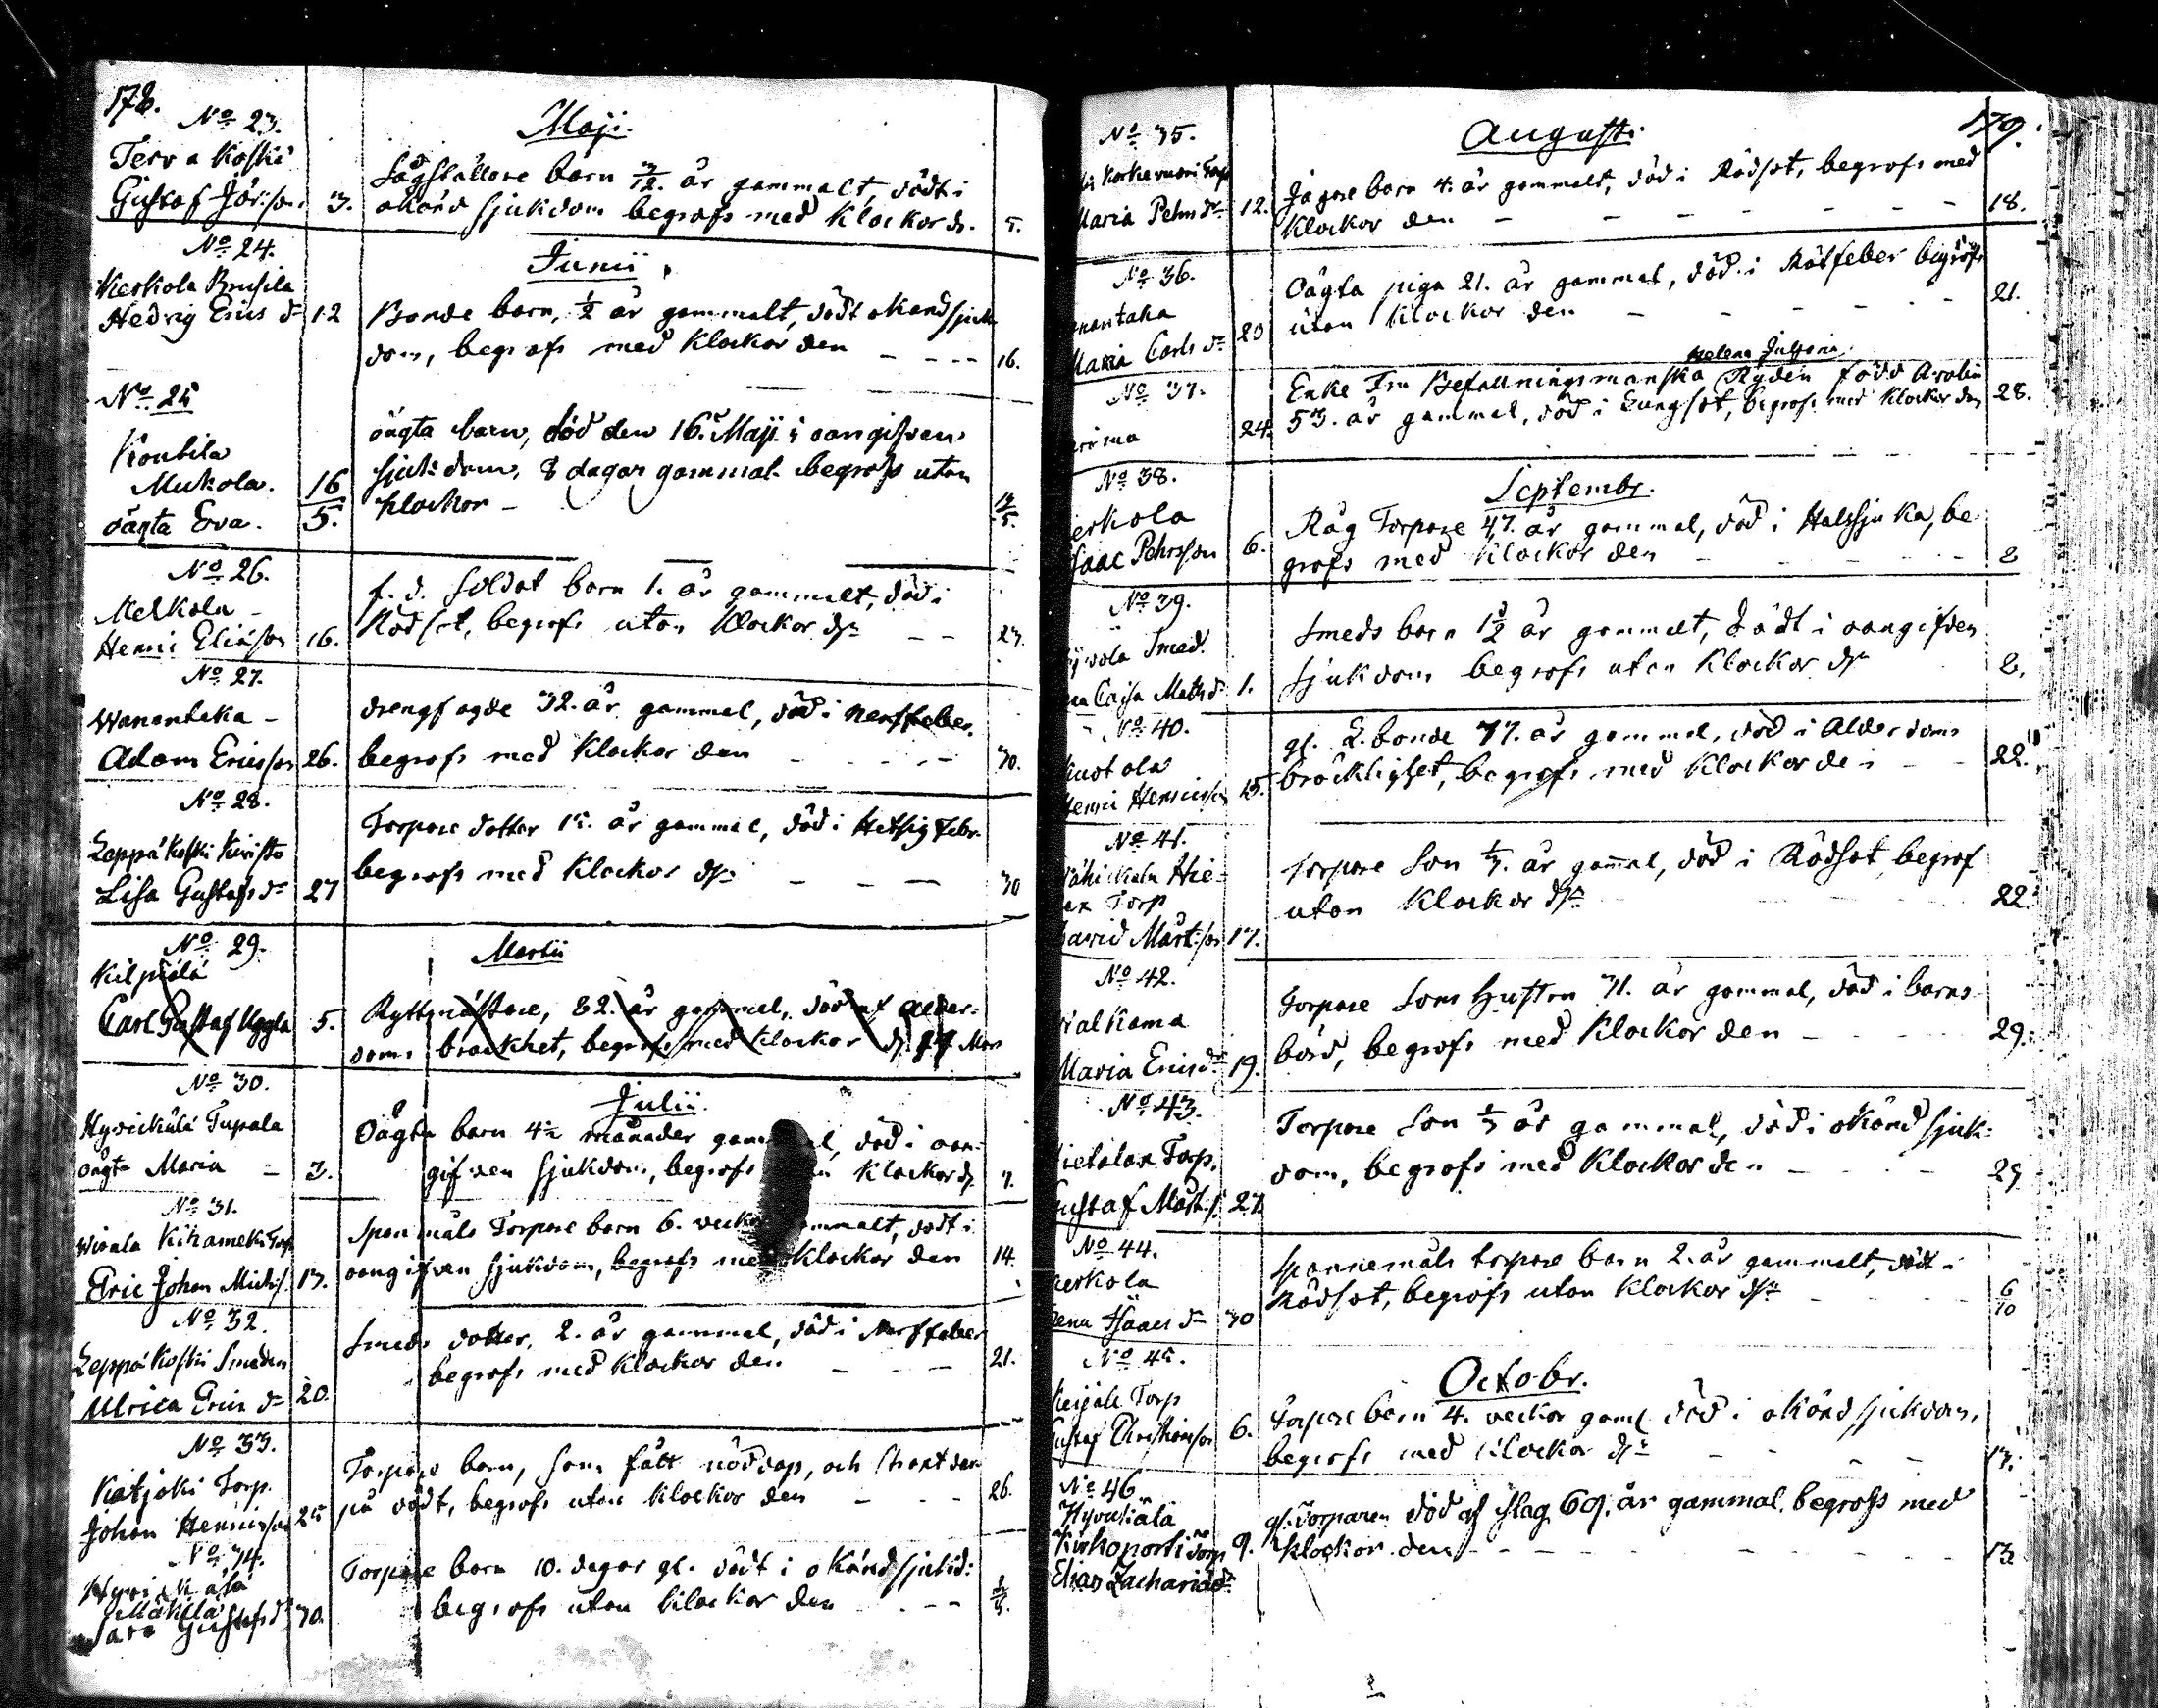 178.
No 23.
Maji.
Terva Koski
Gustaf Jör:son. 3.
Sågställare barn 3/12. år gammalt, dödt i
okänd sjukdom begrofs med Klockor d. 5.
No 24.
Junii
Kerkola Prusila
Hedvig Erics dr 12
Bonde barn, 1/2 år gammalt, dödt okänd sjuk
dom, begrofs med Klockor den - - - - 16.
No 25
Kontila
Mukola.
oägta Eva. 16/5.
oägta barn, död den 16. Maji i oangifven
sjukdom, 8 dagar gammal. begrofs utan
klockor -
No 26.
Merkola -
Henric Eliæson 16.
f. d. Soldat barn 1. år gammalt, död i
Rödsot, begrofs utan Klockor dn - - 23.
No 27.
Wanantaka -
Adam Ericsson 26.
drengfogde 32. år gammal, död i Nerffeber.
begrofs med Klockor den - - - - - 30.
No 28.
Leppäkoski Kuristo
Lisa Gustafs dr 27
Torpare dotter 15. år gammal, död i Hetsig Feber.
begrofs med Klockor dn - - - 30
No 29.
Martii
Kilpiälä
Carl Gustaf Uggla 5.
Ryttmästare, 82. år gammal, död af ålder:
doms bräckhet, begrofs med klockor d. Mars
No 30.
Julii.
Hyvickälä Tupala
oägta Maria - 3.
Oägta barn 4 1/2 månader död i oan:
gifven sjukdom, begrofs Klockor d. 7.
No 31.
Wirala Kihameki Torp
Eric Johan Michs. 13.
Spanmåls Torpare barn 6. veckor gammalt, dödt i
oangifven sjukdom, begrofs med Klockor den 14.
No 32.
Leppäkoski Smeden
Ulrica Erics dr 20.
Smeds dotter, 2. år gammal, död i Nerffeber
begrofs med Klockor den - - - 21.
No 33.
Katjoki Torp.
Johan Henricsson 25
Torpare barn, som fått nöddop, och strax der
på dödt, begrofs utan klockor den - - - 26.
No 34.
Mäkilä
Sara Gustafs dr 30.
Torpare barn 10. dagar gl. dödt i okänd sjukd:
begrofs utan klockor den - - -
179.
No 35.
Augusti.
Korkeamäri Torp
Maria Pehrs dr 12.
Jägare barn 4. år gammalt, död i Rödsot, begrofs med
Klockor den - - - - - - - - 18.
No 36.
Maria Carls dr 20
Oägta piga 21. år gammal, död i Rötfeber begrofs
utan Klockor den - - - - - 21.
No 37.
24.
Helena Juliana
Enke Fru Befallningsmanska Ryden född Arolin
53. år gammal, död i Lungsot, begrofs med Klockor den 28.
No 38.
Septembr.
erkola
Isaac Pehrsson 6.
Råg Torpare 47. år gammal, död i Halssjuka, be-
grofs med Klockor den - - - - - 8
No 39.
Smed.
Caisa Mats dr 1.
Smeds barn 1 1/2 år gammalt, dödt i oangifven
sjukdom begrofs utan Klockor dn 8.
No 40.
Henric Henricsson 15.
gl. L. bonde 77. år gammal, död i Ålderdoms
bräcklighet, begrofs med Klockor den - - 22.
No 41.
Hie-
Torp
David Mårt:son 17.
Torpare Son 1/3. år gammal, död i Rödsot begrof
utan Klockor dn 22.
No 42.
Walkama
Maria Erics dr 19.
Torpare Sons Hustru 31. år gammal, död i barns-
börd, begrofs med Klockor den - - 29.
No 43.
Torp.
Gustaf Mårt.s. 27.
Torpare Son 1/3 år gammal, död i okänd sjuk:
dom, begrofs med Klockor den - - - - 29
No 44.
Kerkola
Lena Isaacs dr 30
Spannemåls torpare barn 2. år gammalt, dödt i
Rödsot, begrofs utan klockor dn - - - 6/10
No 45.
Octobr.
Torp
Gustaf Christiansson 6.
Torpare barn 4. veckor gaml död i okänd sjukdom,
begrofs med klockor dn - - - - 13.
No 46
Hyvikälä
Kirkoporti Torp 9.
Elias Zachariäs
gl. Torparen död af slag 69. år gammal. begrofs med
klockor den - - - - - - - 13